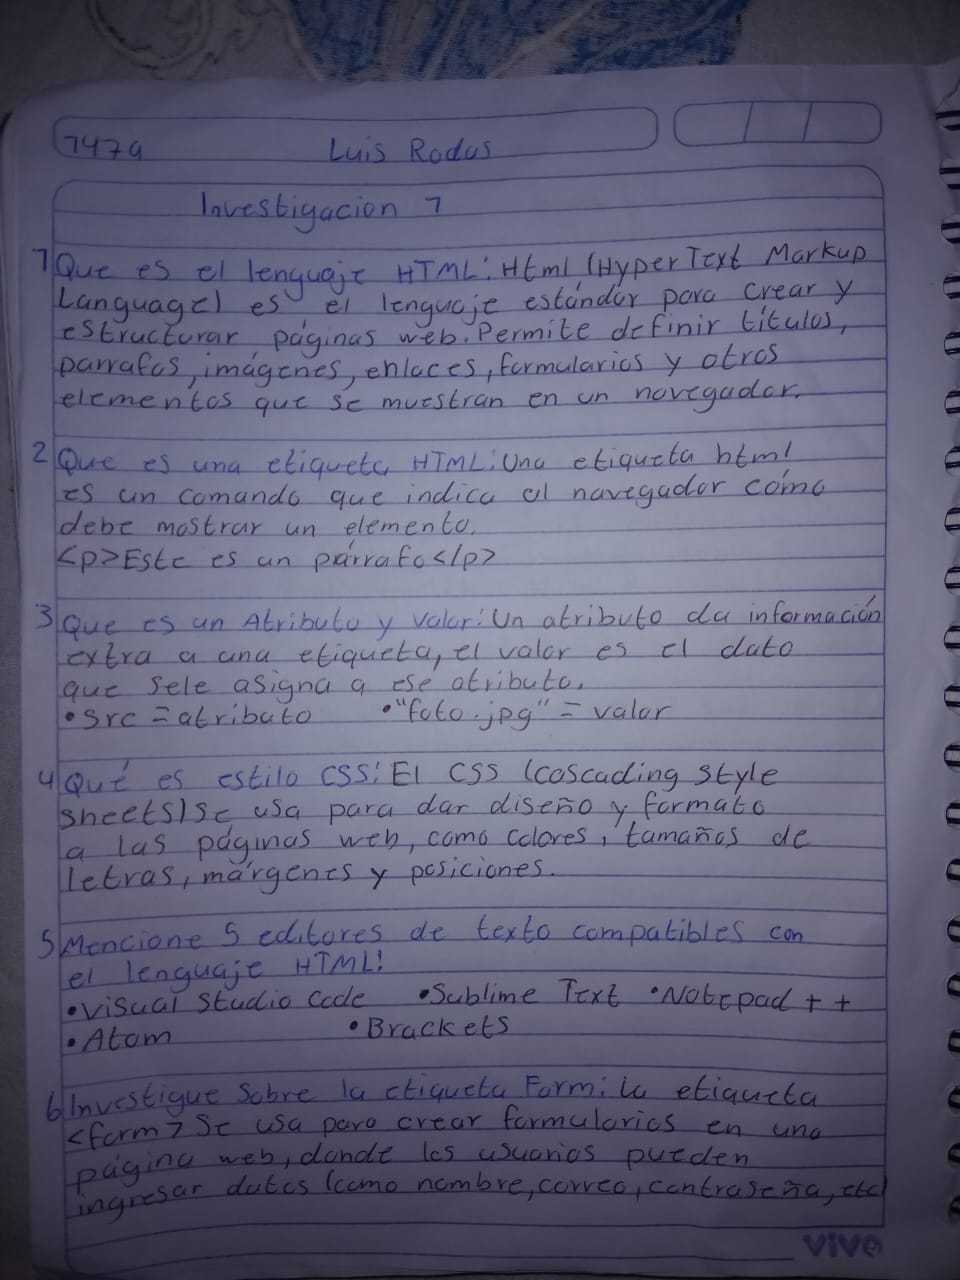 7479 Luis Rodas
Investigacion 7
1 Que es el lenguaje HTML: Html (HyperText Markup
Language) es el lenguaje estándar para crear y
estructurar páginas web. Permite definir títulos,
parrafos, imágenes, enlaces, formularios y otros
elementos que se muestran en un navegador.
2 Que es una etiqueta HTML: Una etiqueta html
es un comando que indica al navegador cómo
debe mostrar un elemento.
<p>Este es un párrafo</p>
3 Que es un Atributo y valor: Un atributo da información
extra a una etiqueta, el valor es el dato
que sele asigna a ese atributo.
•src = atributo •"foto.jpg" = valor
4 Qué es estilo CSS: El CSS (cascading style
sheets) se usa para dar diseño y formato
a las páginas web, como colores, tamaños de
letras, márgenes y posiciones.
5 Mencione 5 editores de texto compatibles con
el lenguaje HTML:
•Visual Studio Code •Sublime Text •Notepad ++
•Atom •Brackets
6 Investigue Sobre la etiqueta Form: la etiqueta
<form> Se usa para crear formularios en una
página web, donde los usuarios pueden
ingresar datos (como nombre, correo, contraseña, etc)
vivo